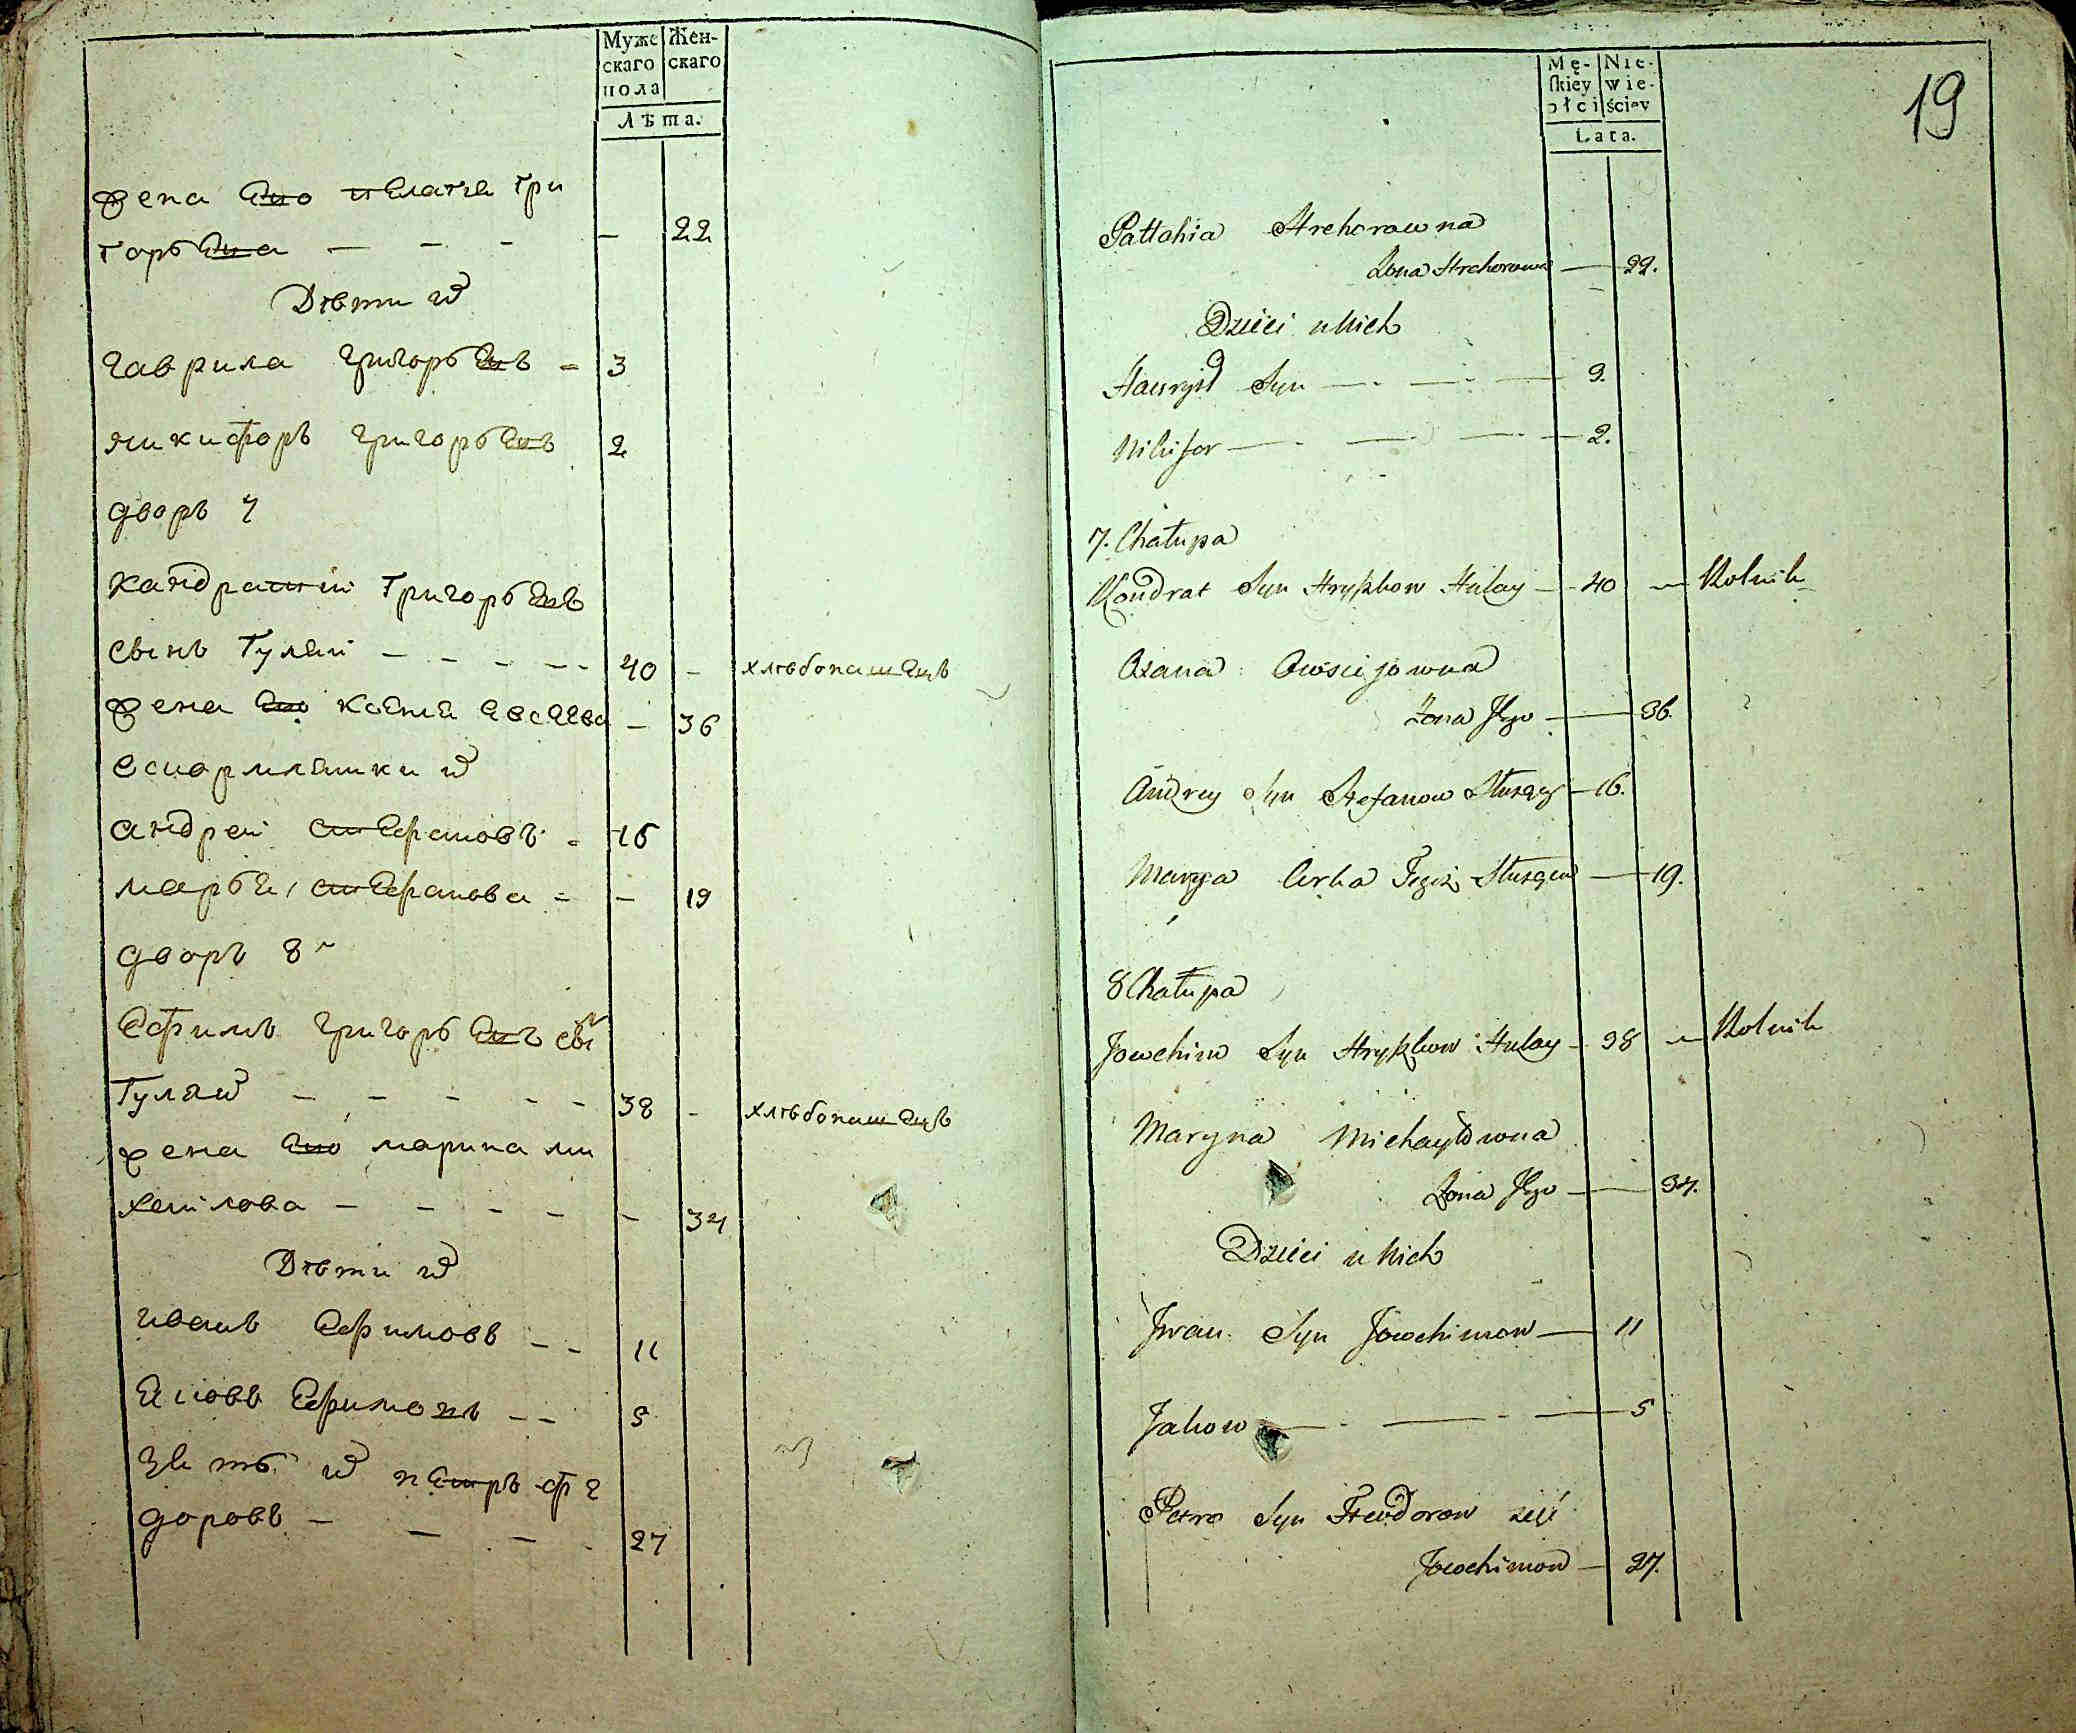 Муже
скаго
пола
Жен-
скаго
Лѣта.
жена его Гри
горьева — - - - 22
Дѣти их
Гаврила Григорьевъ - 3
Никифоръ Григорьевъ 2
дворъ 7
Кандратий Григорьевъ
сынъ Гулай - - - - - 40 - хлѣбопашецъ
жена его - 36
андрей Стефановъ - 16
марья Стефанова - - 19
дворъ 8
Ефимъ Григорьевъ сы
Гулай - - - - - 38 - хлѣбопашецъ
жена его марина ми
хайлова - - - - - 34
Дѣти их
иванъ Ефимовъ - - 11
Яковъ Ефимовъ - - 5
зять их петръ фе
доровъ - - - - 27
Mę-
skiey
płci
Nie-
wie-
ściey
Lata.
19
Pałłahia
Żona — 22.
Dzieci u Nich
Hawryło Syn — . — . — 3.
Nikifor — . — . — . — 2.
7. Chałupa
Kondrat Syn Hryhkow Hulay — 40 — Rolnik
Owsiejowna
Żona Jego — 36.
Andrey Syn Stefanow — 16.
Marya — 19.
8 Chałupa
Jowchim Syn Hryhkow Hulay — 38 — Rolnik
Maryna Michayłowna
Żona Jego — 34.
Dzieci u Nich
Jwan Syn Jowchimow — 11
Jakow — . — . — 5
Petro Syn Feodorow zięć
Jowchimow — 27.